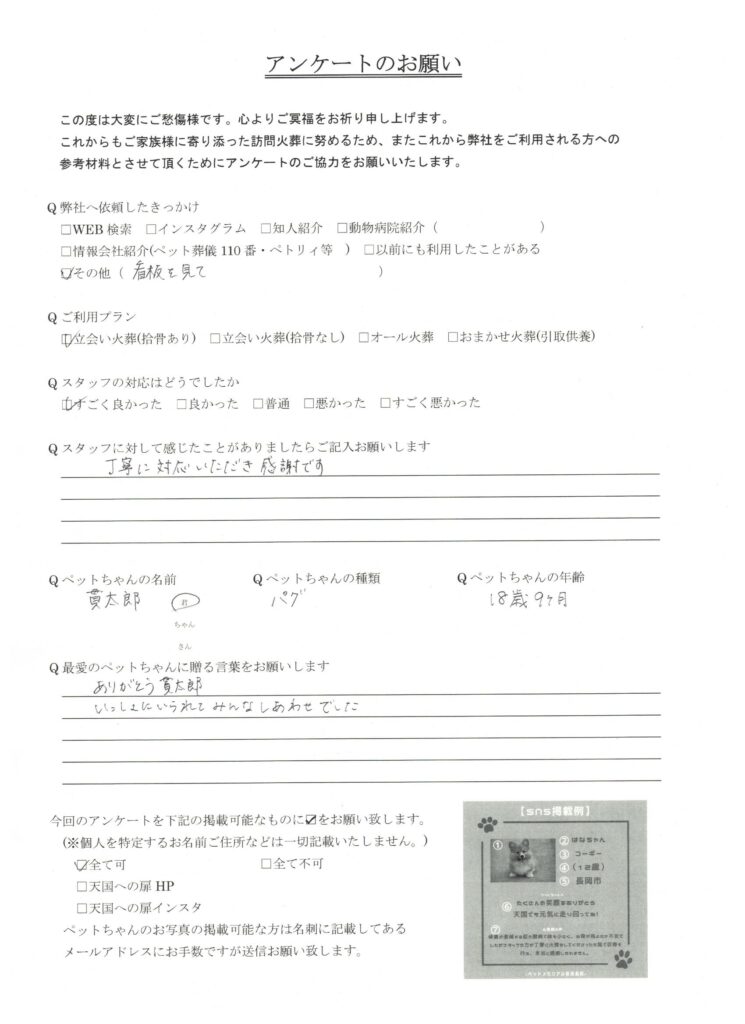 アンケートのお願い
この度は大変にご愁傷様です。心よりご冥福をお祈り申し上げます。
これからもご家族様に寄り添った訪問火葬に努めるため、またこれから弊社をご利用される方への
参考材料とさせて頂くためにアンケートのご協力をお願いいたします。
Q 弊社へ依頼したきっかけ
□WEB 検索 □インスタグラム □知人紹介 □動物病院紹介（ ）
□情報会社紹介(ペット葬儀 110 番・ペトリィ等 ) □以前にも利用したことがある
☑その他（ 看板を見て ）
Q ご利用プラン
☑立会い火葬(拾骨あり) □立会い火葬(拾骨なし) □オール火葬 □おまかせ火葬(引取供養)
Q スタッフの対応はどうでしたか
☑すごく良かった □良かった □普通 □悪かった □すごく悪かった
Q スタッフに対して感じたことがありましたらご記入お願いします
丁寧に対応いただき感謝です
Q ペットちゃんの名前 Q ペットちゃんの種類 Q ペットちゃんの年齢
貫太郎 君 パグ 18歳9ヶ月
ちゃん
さん
Q 最愛のペットちゃんに贈る言葉をお願いします
ありがとう貫太郎
いっしょにいられてみんなしあわせでした
今回のアンケートを下記の掲載可能なものに☑をお願い致します。
(※個人を特定するお名前ご住所などは一切記載いたしません。)
☑全て可 □全て不可
□天国への扉 HP
□天国への扉インスタ
ペットちゃんのお写真の掲載可能な方は名刺に記載してある
メールアドレスにお手数ですが送信お願い致します。
【sns掲載例】
① ② はなちゃん
③ コーギー
④ (12歳)
⑤ 長岡市
⑥ たくさんの笑顔をありがとう
天国でも元気に走り回ってね！
⑦